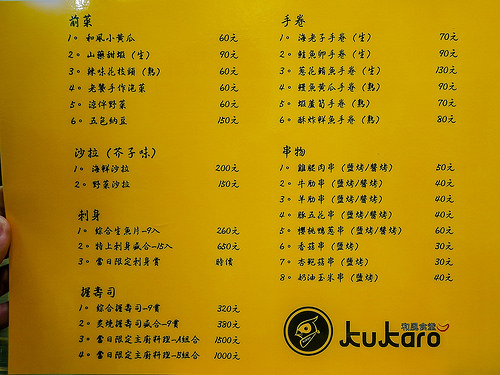 前菜
1。 和風小黃瓜 60元
2。 山藥甜蝦 (生) 90元
3。 辣味花枝頭 (熟) 60元
4。 老饕手作泡菜 60元
5。 涼伴野菜 60元
6。 五色納豆 150元
沙拉 (芥子味)
1。 海鮮沙拉 200元
2。 野菜沙拉 150元
刺身
1。 綜合生魚片-9入 260元
2。 特上刺身盛合-15入 650元
3。 當日限定刺身賞 時價
握壽司
1。 綜合握壽司-9賞 320元
2。 炙燒握壽司盛合-9賞 380元
3。 當日限定主廚料理-A組合 1500元
4。 當日限定主廚料理-B組合 1000元
手卷
1。 海老子手卷 (生) 70元
2。 鮭魚卵手卷 (生) 90元
3。 蔥花鮪魚手卷 (生) 130元
4。 鰻魚黃瓜手卷 (熟) 90元
5。 蝦蘆筍手卷 (熟) 70元
6。 酥炸鮮魚手卷 (熟) 80元
串物
1。 雞腿肉串 (鹽烤/醬烤) 50元
2。 牛肋串 (鹽烤/醬烤) 40元
3。 羊肋串 (鹽烤/醬烤) 40元
4。 豚五花串 (鹽烤/醬烤) 40元
5。 櫻桃鴨蔥串 (鹽烤/醬烤) 60元
6。 香菇串 (鹽烤) 30元
7。 杏鮑菇串 (鹽烤) 30元
8。 奶油玉米串 (鹽烤) 40元
和風食堂
kukaro